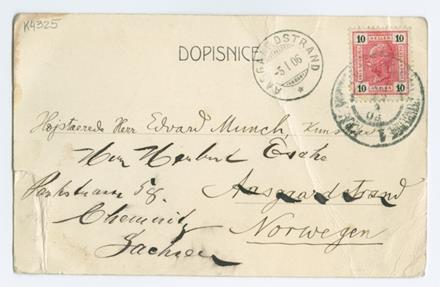 K4325
DOPISNICE
AASGAARDSTRAND
-5 I 06
10 10
10 10
Højstærede Herr Edvard Munch, Kunstner
Herr Herbert Esche
Parkstrasse 58. Aasgaardstrand
Chemnitz
Norwegen
Sachsen